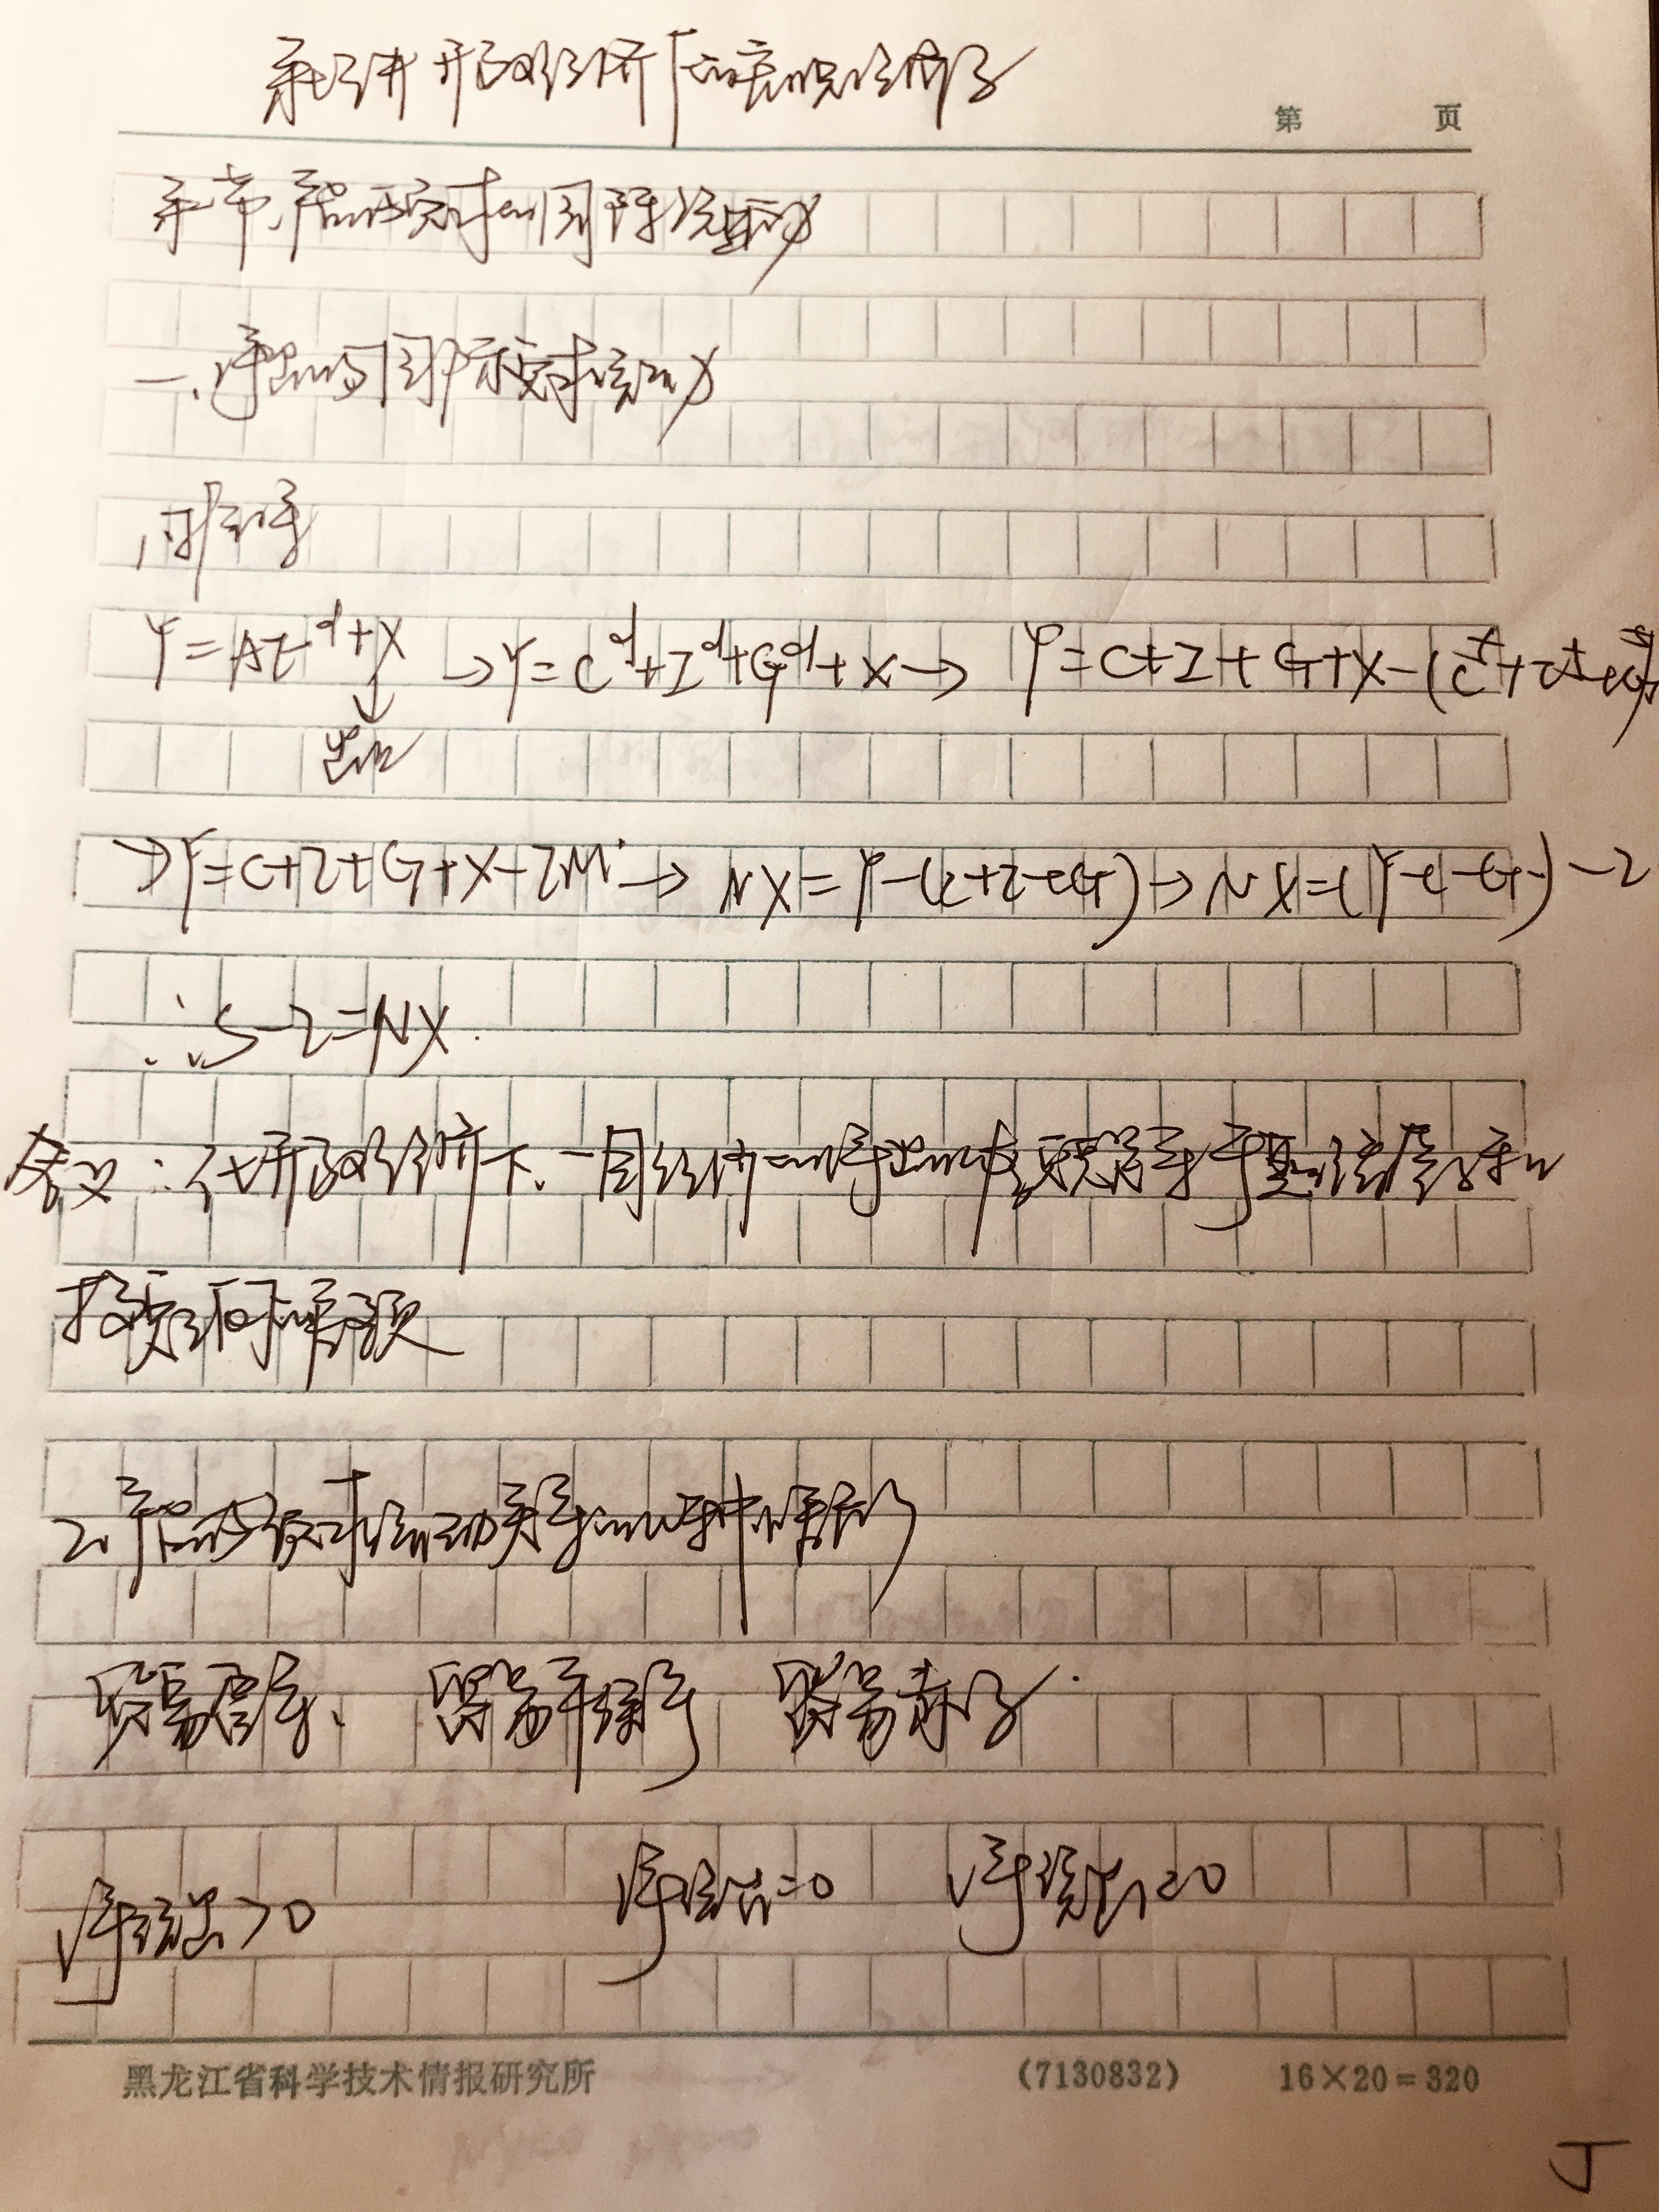 第七讲 开放经济下的宏观经济学
第 页
第一节、产品与资本的国际流动
一、产品与国际资本流动
1、内部平
Y=AE^d+X →Y=C^d+I^d+G^d+X→ Y=C+I+G+X-(C^f+I^f+G^f)
出口
→Y=C+I+G+X-IM → NX=Y-(C+I+G)→NX=(Y-C-G)-I
∴S-I=NX
含义:在开放经济下、一国经济的净出口总等于储蓄和
投资之间的差额
2、产品与资本流动关系的三种情形
贸易盈余、 贸易平衡 贸易赤字
净出口>0 净出口=0 净出口<0
黑龙江省科学技术情报研究所 (7130832) 16×20=320